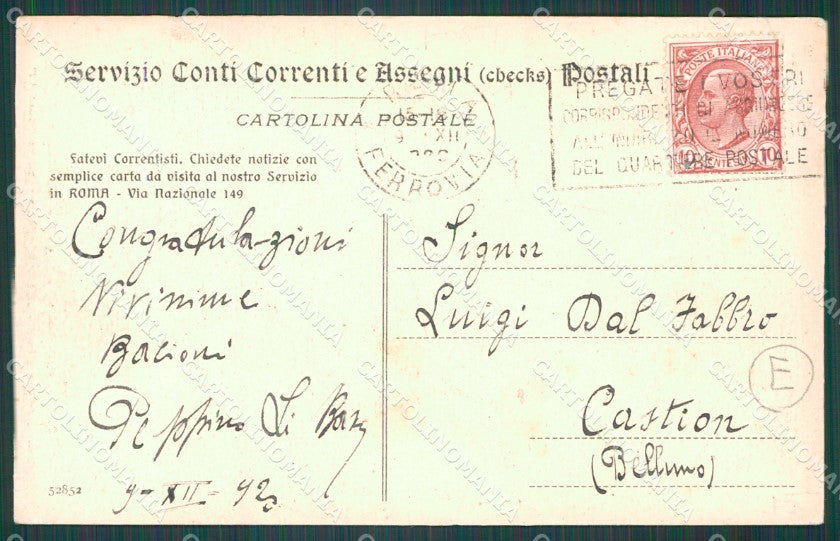 Servizio Conti Correnti e Assegni (checks) Postali
CARTOLINA POSTALE
Fatevi Correntisti. Chiedete notizie con
semplice carta da visita al nostro Servizio
in ROMA - Via Nazionale 149
POSTE ITALIANE
10 10
FERROVIA
XII
PREGATE I VOSTRI
CORRISPONDENTI DI
ALL'INDIRIZZO IL NUMERO
DEL QUARTIERE POSTALE
Congratulazioni
Vivissime
Bacioni
Peppino Li
9-XII-
52852
Signor
Luigi Dal Fabbro
Castion
(Belluno)
E
CARTOLINOMANIA